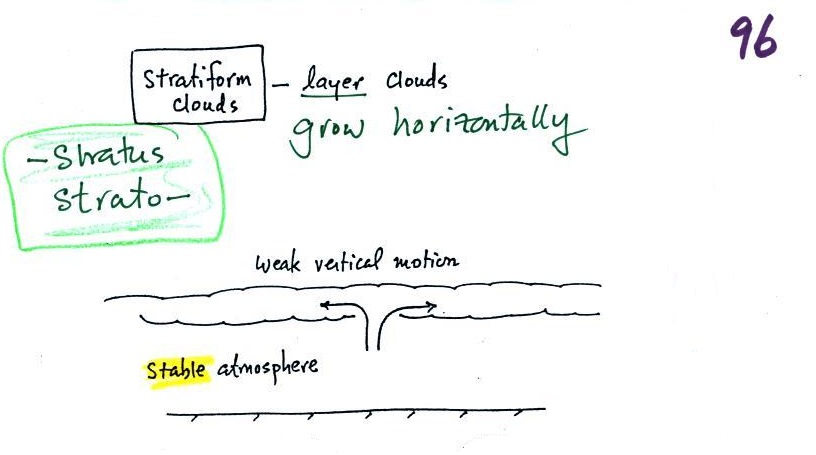 96
Stratiform clouds – layer clouds
grow horizontally
– Stratus
Strato –
Weak vertical motion
Stable atmosphere